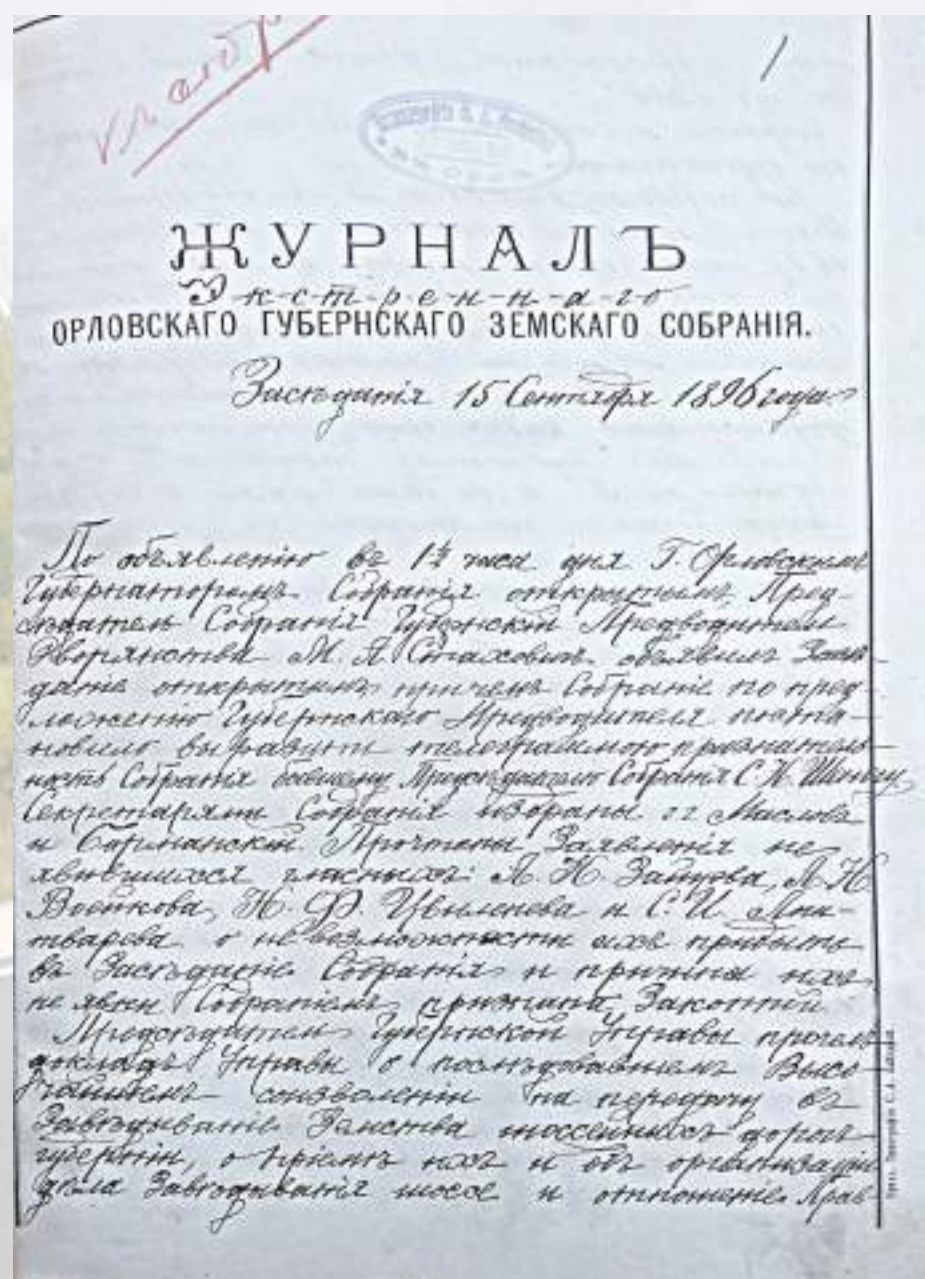 1
ЖУРНАЛЪ
Экстреннаго
ОРЛОВСКАГО ГУБЕРНСКАГО ЗЕМСКАГО СОБРАНІЯ.
Засѣданія 15 Сентября 1896 года
По объявленію въ 1½ часа дня Г. Орловскимъ
Губернаторомъ Собранія открытымъ, Пред-
сѣдатель Собранія Губернскій Предводитель
Дворянства М. А. Стаховичъ объявилъ Засѣ-
даніе открытымъ, причемъ Собраніе по пред-
ложенію Губернскаго Предводителя поста-
новило выразить телеграммою признатель-
ность Собранія бывшему Предсѣдателю Собранія С. Н.
Секретарями Собранія избраны гг Масловъ
и Прочтены Заявленія не
явившихся гласныхъ: Л. Н. Зайцева, Л. Н.
Воейкова, Н. Ф. Цвиленева и С. И.
о невозможности ихъ прибыть
въ Засѣданіе Собранія и причина ихъ
не явки Собраніемъ признана Законной.
Предсѣдатель Губернской Управы прочелъ
докладъ Управы о послѣдовавшемъ Высо-
чайшемъ соизволеніи на передачу въ
Завѣдываніе Земства шоссейныхъ дорогъ
губерніи, о пріемѣ ихъ и объ организаціи
дѣла Завѣдыванія шоссе и отношеніе Прав